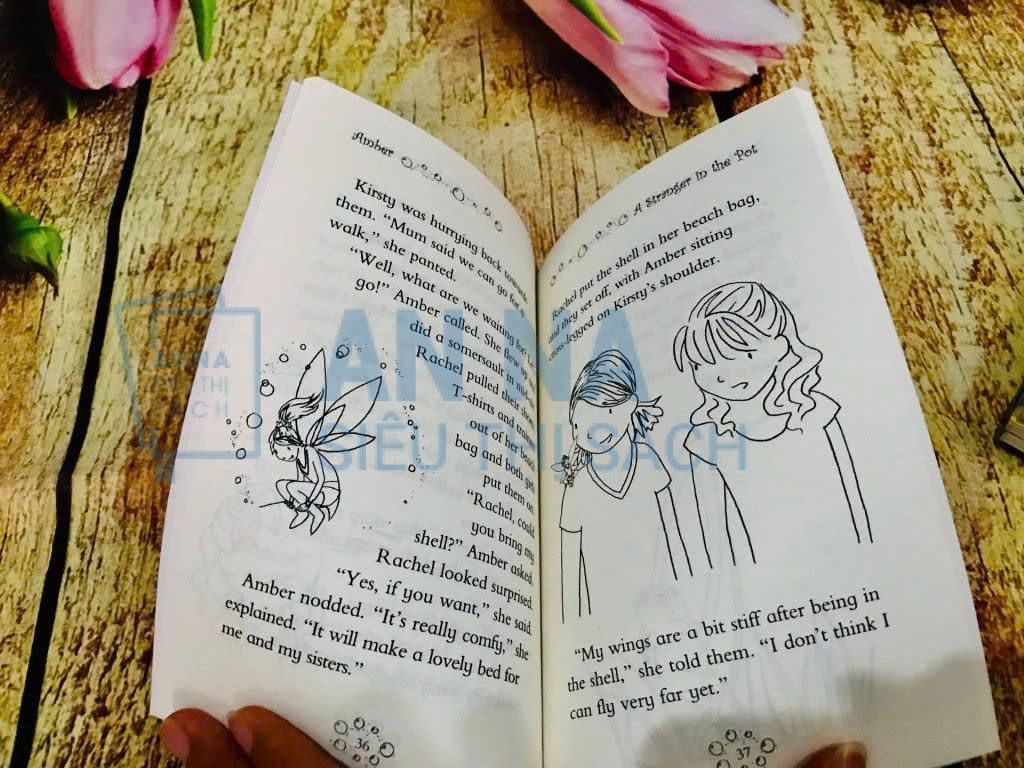 Amber
Kirsty was hurrying back towards
them. “Mum said we can go for a
walk,” she panted.
“Well, what are we waiting for?
go!” Amber called. She flew up
did a somersault in mid-air
Rachel pulled their shorts
T-shirts and trainers
out of her beach
bag and both girls
put them on.
“Rachel, could
you bring my
shell?” Amber asked.
Rachel looked surprised.
“Yes, if you want,” she said.
Amber nodded. “It’s really comfy,” she
explained. “It will make a lovely bed for
me and my sisters.”
36
A Stranger in the Pot
Rachel put the shell in her beach bag,
and they set off, with Amber sitting
cross-legged on Kirsty’s shoulder.
“My wings are a bit stiff after being in
the shell,” she told them. “I don’t think I
can fly very far yet.”
37
ANNA
SIÊU THỊ SÁCH
ANNA
SIÊU THỊ
SÁCH